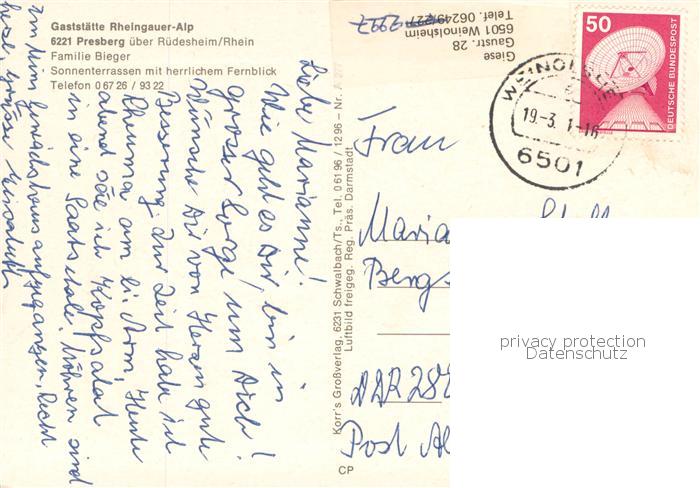 Gaststätte Rheingauer-Alp
6221 Presberg über Rüdesheim/Rhein
Familie Bieger
Sonnenterrassen mit herrlichem Fernblick
Telefon 0 67 26 / 93 22
Liebe Marianne!
Wie geht es Dir, bin in
grosser Sorge, um Dich!
Wünsche Dir von Herzen gute
Besserung. Zur Zeit habe ich
Rheuma am li. Arm, Heute
abend säe ich Kopfsalat
in eine Saatschale. Möhren sind
im Gewächshaus aufgegangen, Recht
herzl. Grüsse Elisabeth
Korr's Großverlag, 6231 Schwalbach/Ts., Tel. 0 61 96 / 12 96 – Nr.
Luftbild freigeg. Reg. Präs. Darmstadt
Giese
Gaustr. 28
6501 Weinolsheim
Telef. 06249/227
7997
50
DEUTSCHE BUNDESPOST
19.-3.
6501
Frau
Maria
Bergs
DDR 282
Post Al
CP
privacy protection
Datenschutz